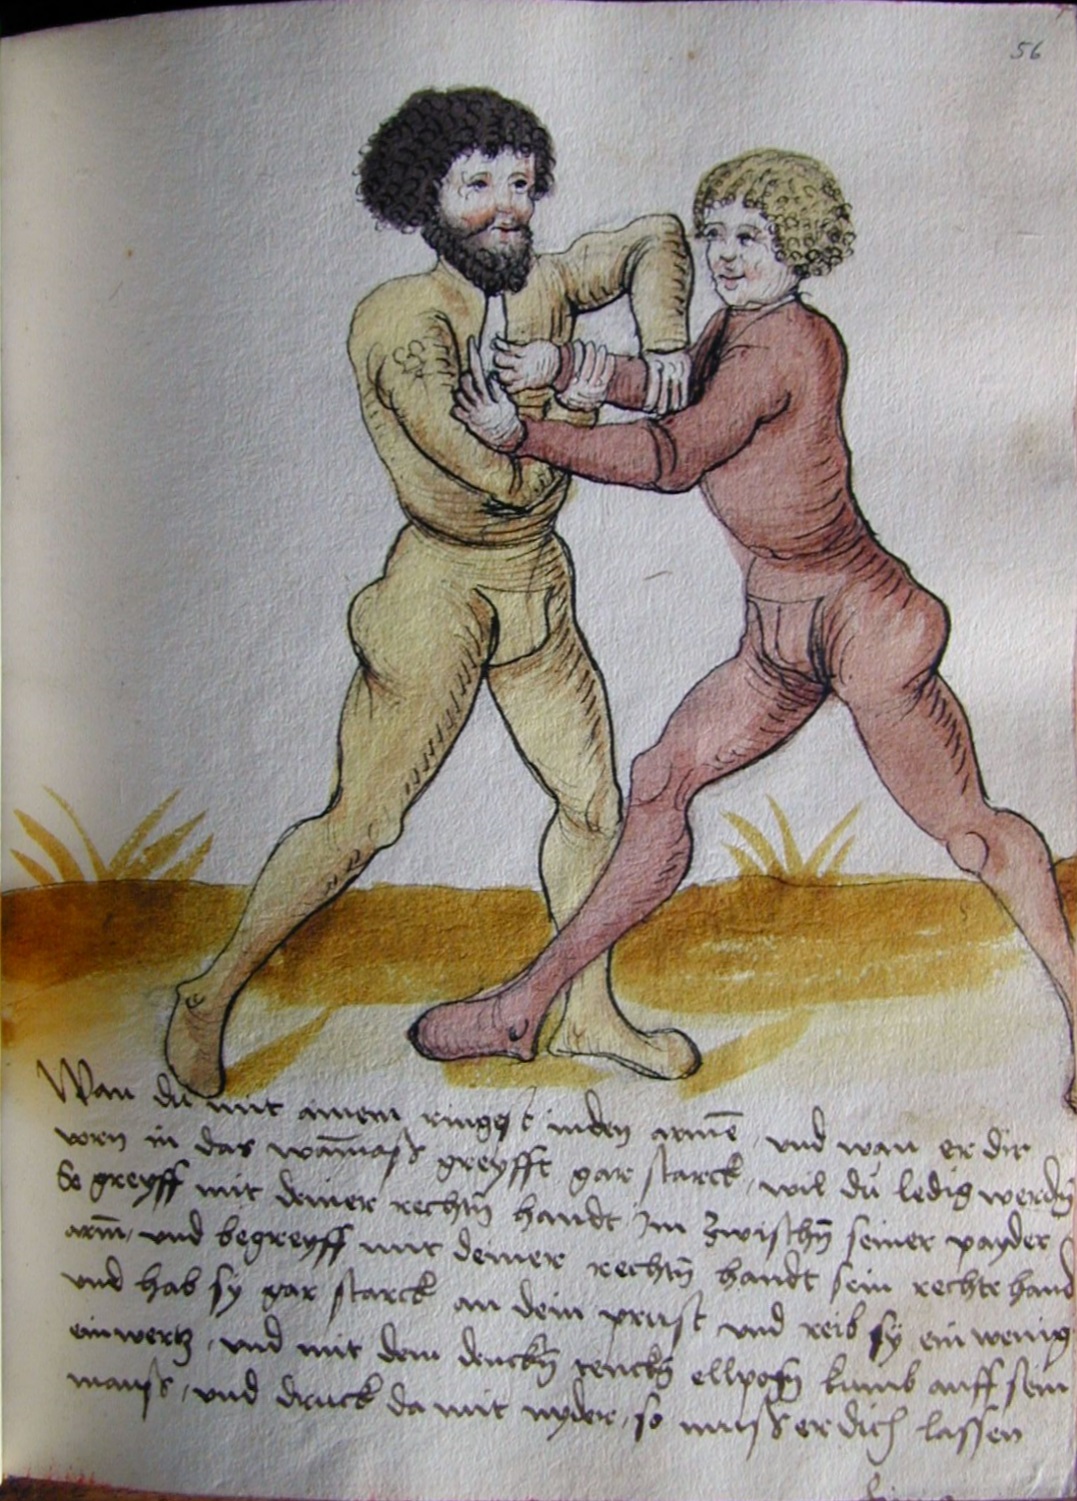 56
Wan du mit ainem ringest inden armē und wan er dir
vorn in das wām̄aß greyfft gar starck, wil du ledig werdn̄
So greyff mit deiner rechtn̄ handt Im zwischn̄ seiner payder
arm̄, und begreyff mit deiner rechtn̄ handt sein rechte hand
und hab sy gar starck an dein prust und reib sy ein wenig
einwertz, und mit dem denckn̄ tenckn̄ ellpogn̄ kumb auff sein
mauß, und druck damit nyder, so muß er dich lassen